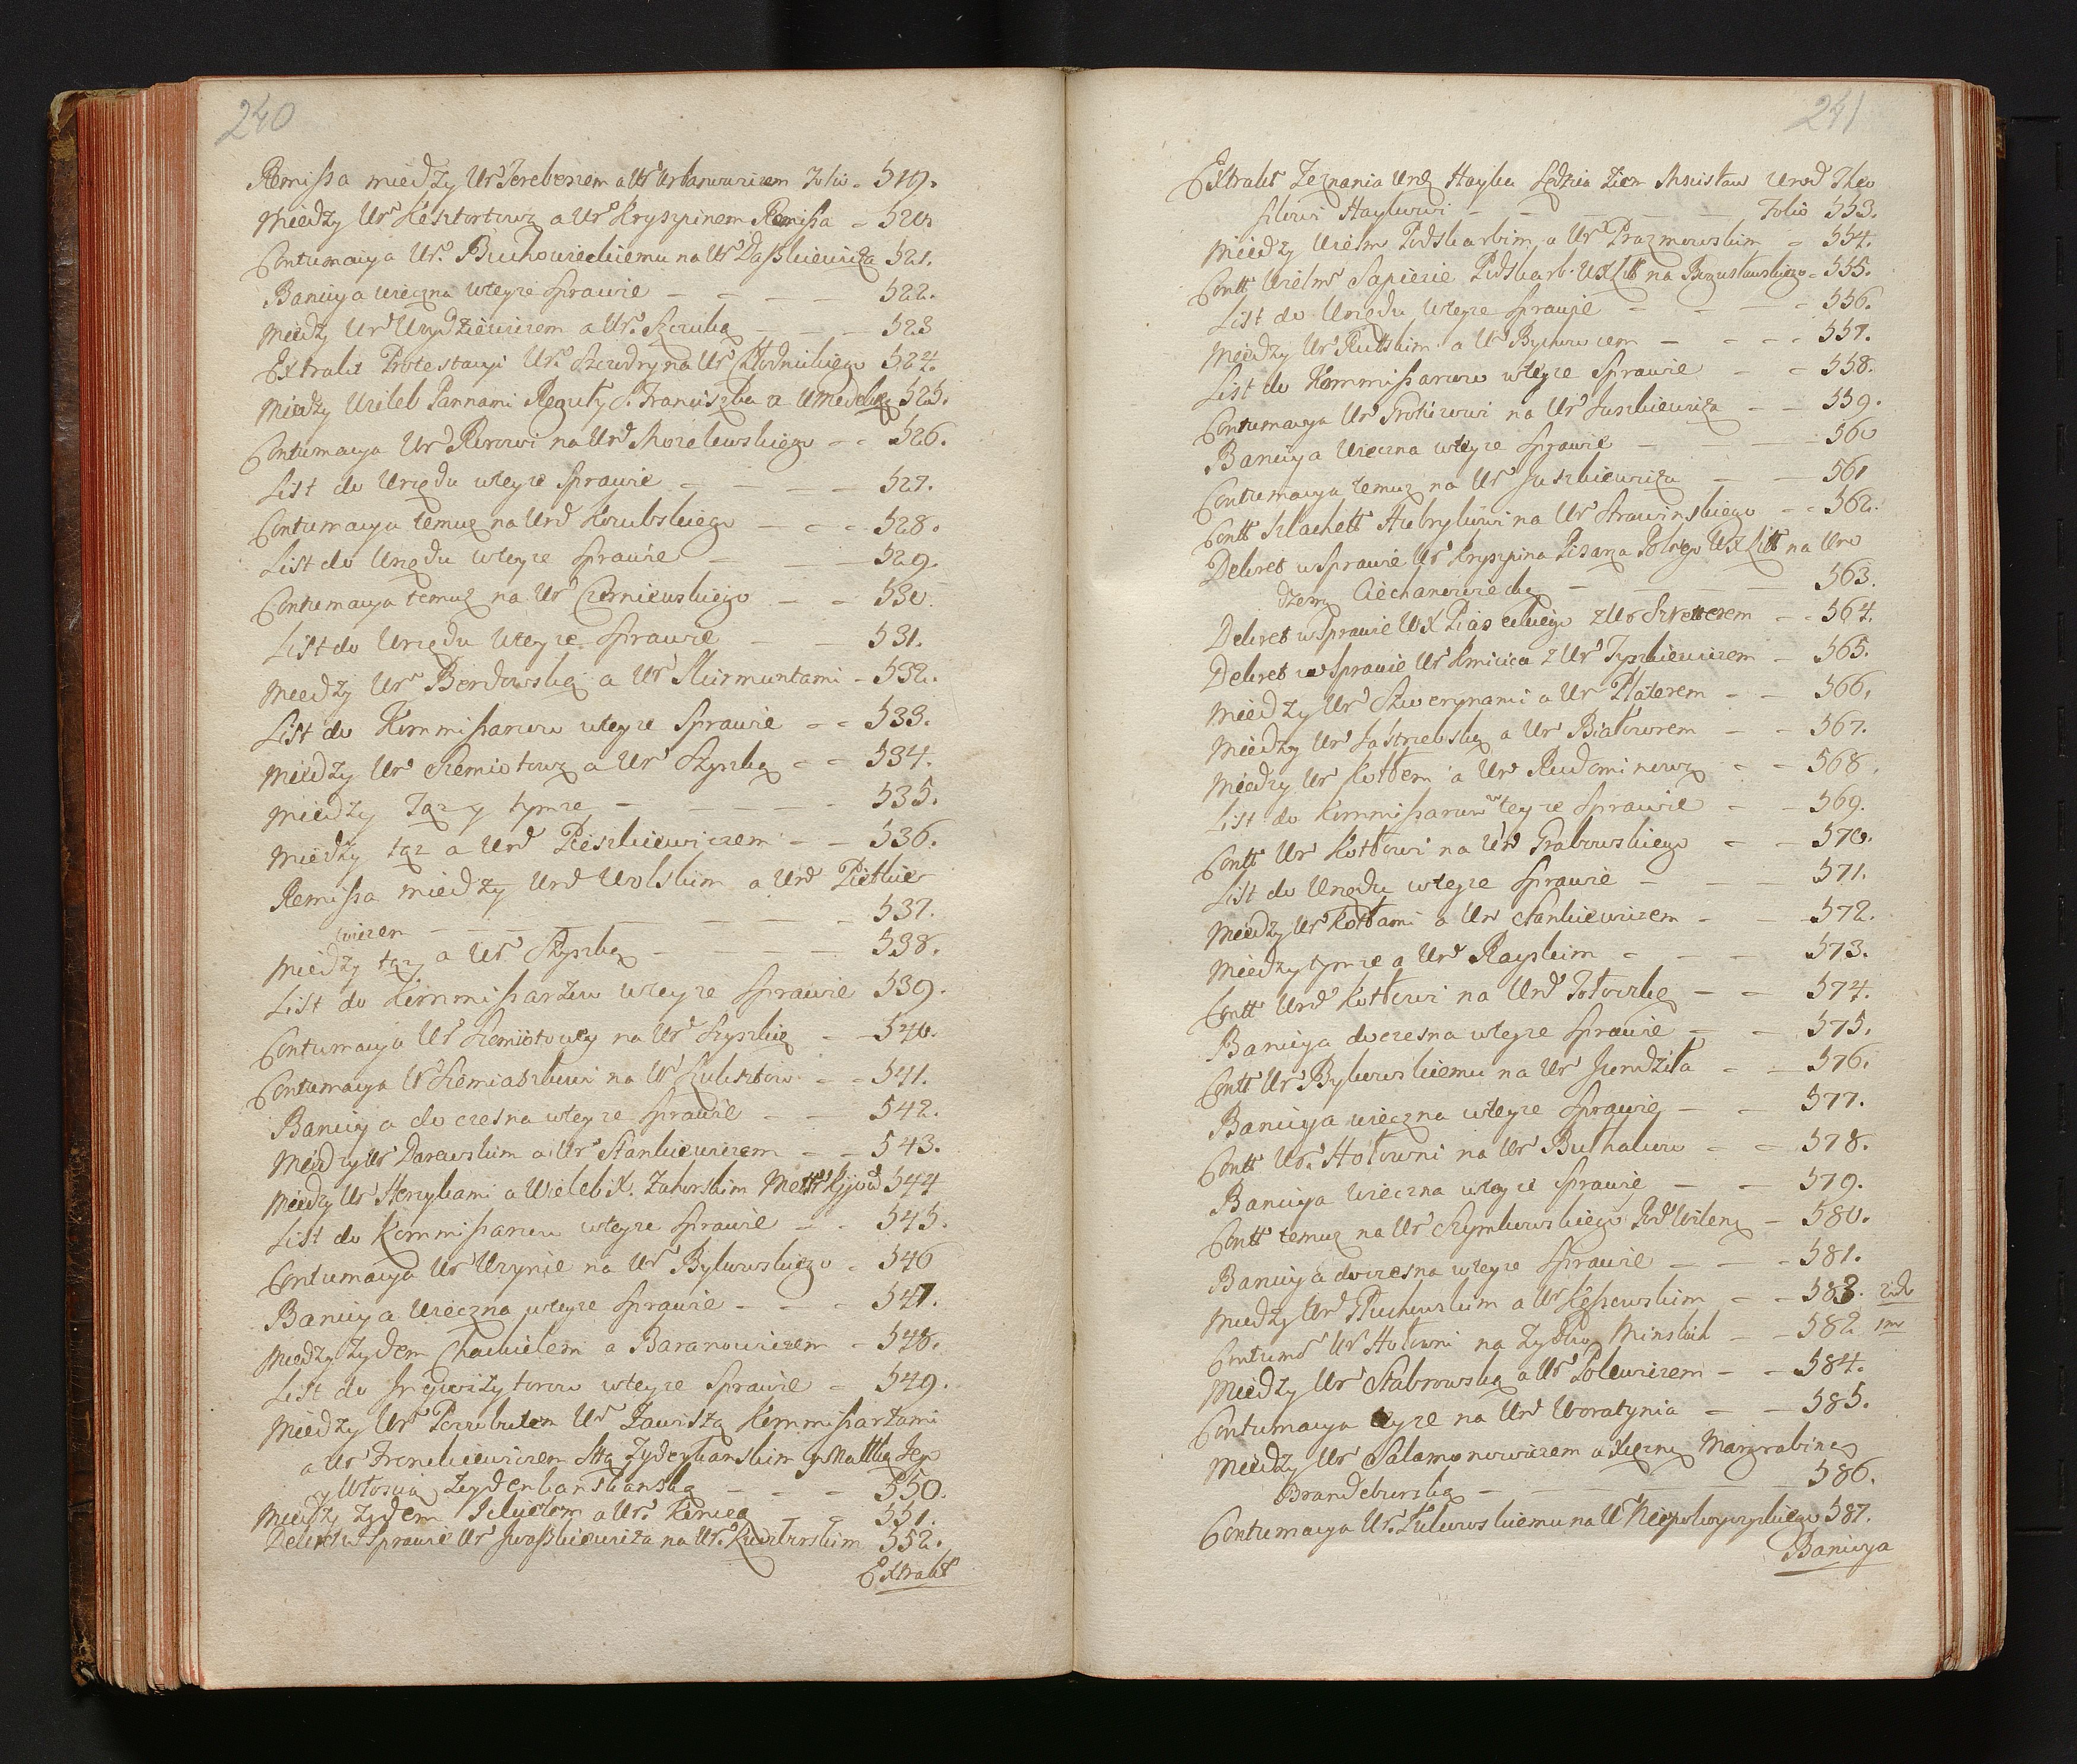 240
Remissa między Ur Jerebczem a Ur Urbanowiczem Folio - 519.
Między Ur Kesztortową a Ur Kryszpinem Remissa - 520.
Contumacya Ur. Buchowieckiemu na Ur Daszkiewicza 521.
Banicya wieczna wteyże Sprawie - - - - 522.
Między Ur Urydziewiczem a Ur. Szczuką - - - 523
Extrakt Protestacyi Ur. Szczodry na Ur Chłodnickiego 524.
Między Wieleb Pannami Reguły S. Franciszka a 525.
Contumacya Urd Rerowi na Urd Mozelewskiego - - 526.
List do Urzędu wteyże Sprawie - - - - 527.
Contumacya temuż na Urd Korubskiego - - - 528.
List do Urzędu wteyże Sprawie - - - 529.
Contumacya temuż na Ur Czerniewskiego - - 530.
List do Urzędu wteyże Sprawie - - - 531.
Między Ur Bordowską a Ur Skirmuntami - 532.
List do Kommissarzow wteyże Sprawie - - 533.
Między Ur Siemiotową a Ur Szyszką - - 534.
Między Tąż y tymże - - - - 535.
Między tąż a Urd Pieszkiewiczem - - 536.
Remissa między Urd Wolskim a Urd Pietkie-
wiczem - - - - - 537.
Między tąż a Ur Szyszką - - - - 538.
List do Kommissarzów wteyże Sprawie 539.
Contumacya Ur Siemiotowey na Ur Szyszkę - - 540.
Contumacya Ur Siemiaszkowi na Ur Kulsztow - - 541.
Banicya doczesna wteyże Sprawie - - 542.
Między Ur Darewskim a Ur Stankiewiczem - - 543.
Między Ur Horzykami a Wieleb X. Zahorskim Mett Kijow 544
List do Kommissarzow wteyże Sprawie - - 545.
Contumacya Ur Uzynie na Ur Bykowskiego - 546
Banicya Wieczna wteyże Sprawie - - - 547.
Między Żydem Chackielem a Baranowiczem - 548.
List do Inqwizytorow wteyże Sprawie - 549.
Między Ur Porzubutem Ur Zawiszą Kommissarzami
a Ur Fronckiewiczem Sttą Żydeykanskim y Mattką Jego
y Włoscią Żydeykanskanską - - - 550.
Między Żydem Ickielem a Ur. Kewicą - - 551.
Dekret w Sprawie Ur Iwaszkiewicza na Ur. Kuciburskim 552.
Extrakt
241
Extrakt Zeznania Urg Hayka Sędzia Ziem Mscisław Urod Theo
filowi Haykowi - - - - Folio 553.
Między Wielm Podskarbim a Ur Prazmowskim - 554.
Contt Wielm Sapiezie Podskarb. WXLitt na Brzustowskiego - 555.
List do Urzędu wteyże Sprawie - - - - 556.
Między Ur Ruttskim a Ur Bykowcem - - - - 557.
List do Kommissarzow wteyże Sprawie - - 558.
Contumacya Ur Prottizowi na Ur Juszkiewicza - - 559.
Banicya Wieczna wteyże Sprawie - - - 560
Contumacya temuż na Ur Juszkiewicza - - 561
Contt Szlachett Hubrykowi na Ur Strawinskiego - - 562.
Dekret w Sprawie Ur Kryszpina Pisarza Polnego WXLitt na Uro
dzoną Ciechanowiecką - - - 563.
Dekret w Sprawie WX Piaseckiego z Ur Szretterem - - 564.
Dekret w Sprawie Ur Kmicica z Ur Tyszkiewiczem - 565.
Między Ur Szwerynami a Ur Platerem - - 566.
Między Ur Jastrzebską a Ur Białozorem - - 567.
Między Ur Kottem a Urd Rudominową - - 568.
List do Kommissarzow wteyże Sprawie - - 569.
Contt Ur Kottowi na Urd Grabowskiego - - 570.
List do Urzędu wteyże Sprawie - - - 571.
Między Ur Kottami a Urd Stankiewiczem - - 572.
Między tymże a Urd Rayskim - - - 573.
Contt Urd Kottowi na Urd Tołoczkę - - 574.
Banicya doczesna wteyże Sprawie - - 575.
Contt Ur. Bykowskiemu na Ur Jundziła - - 576.
Banicya wieczna wteyże Sprawie - - 577.
Contt Ur. Hołowni na Ur Buthakow - - 578.
Banicya wieczna wteyże Sprawie - - 579.
Contt temuż na Ur Szymkowskiego Pod Wilen - 580.
Banicya doczesna wteyże Sprawie - - - 581.
Między Urd Głuchowskim a Ur Kęszewskim - - 583. 2do
Contum Ur Hołowni na Żydów Minskich - - 582 1mo
Między Ur Stabrowską a Ur Polewiczem - - 584.
Contumacya teyże na Urd Woratynia - - 585.
Między Ur Salamonowiczem a Xięzną Margrabiną
Brandeburską - - - 586.
Contumacya Ur. Zukowskiemu na Ur Niepokoyczyckiego 587.
Banicya